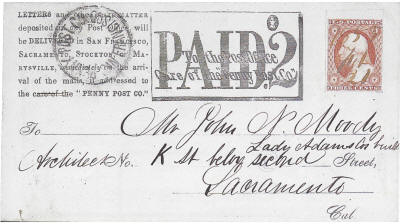 LETTERS and
deposited
will
be DELIVERED in SAN FRANCISCO,
SACRAMENTO, STOCKTON or MA-
RYSVILLE, immediately on the arri-
val of the mails, if addressed to
the care of the "PENNY POST CO."
PAID. 2
To the Post Office
Care of the Penny Post Co.
U.S. POSTAGE
THREE CENTS
To Mr John N. Moody
Architect No. Lady Adams los build
K St below second Street,
Sacramento
Cal